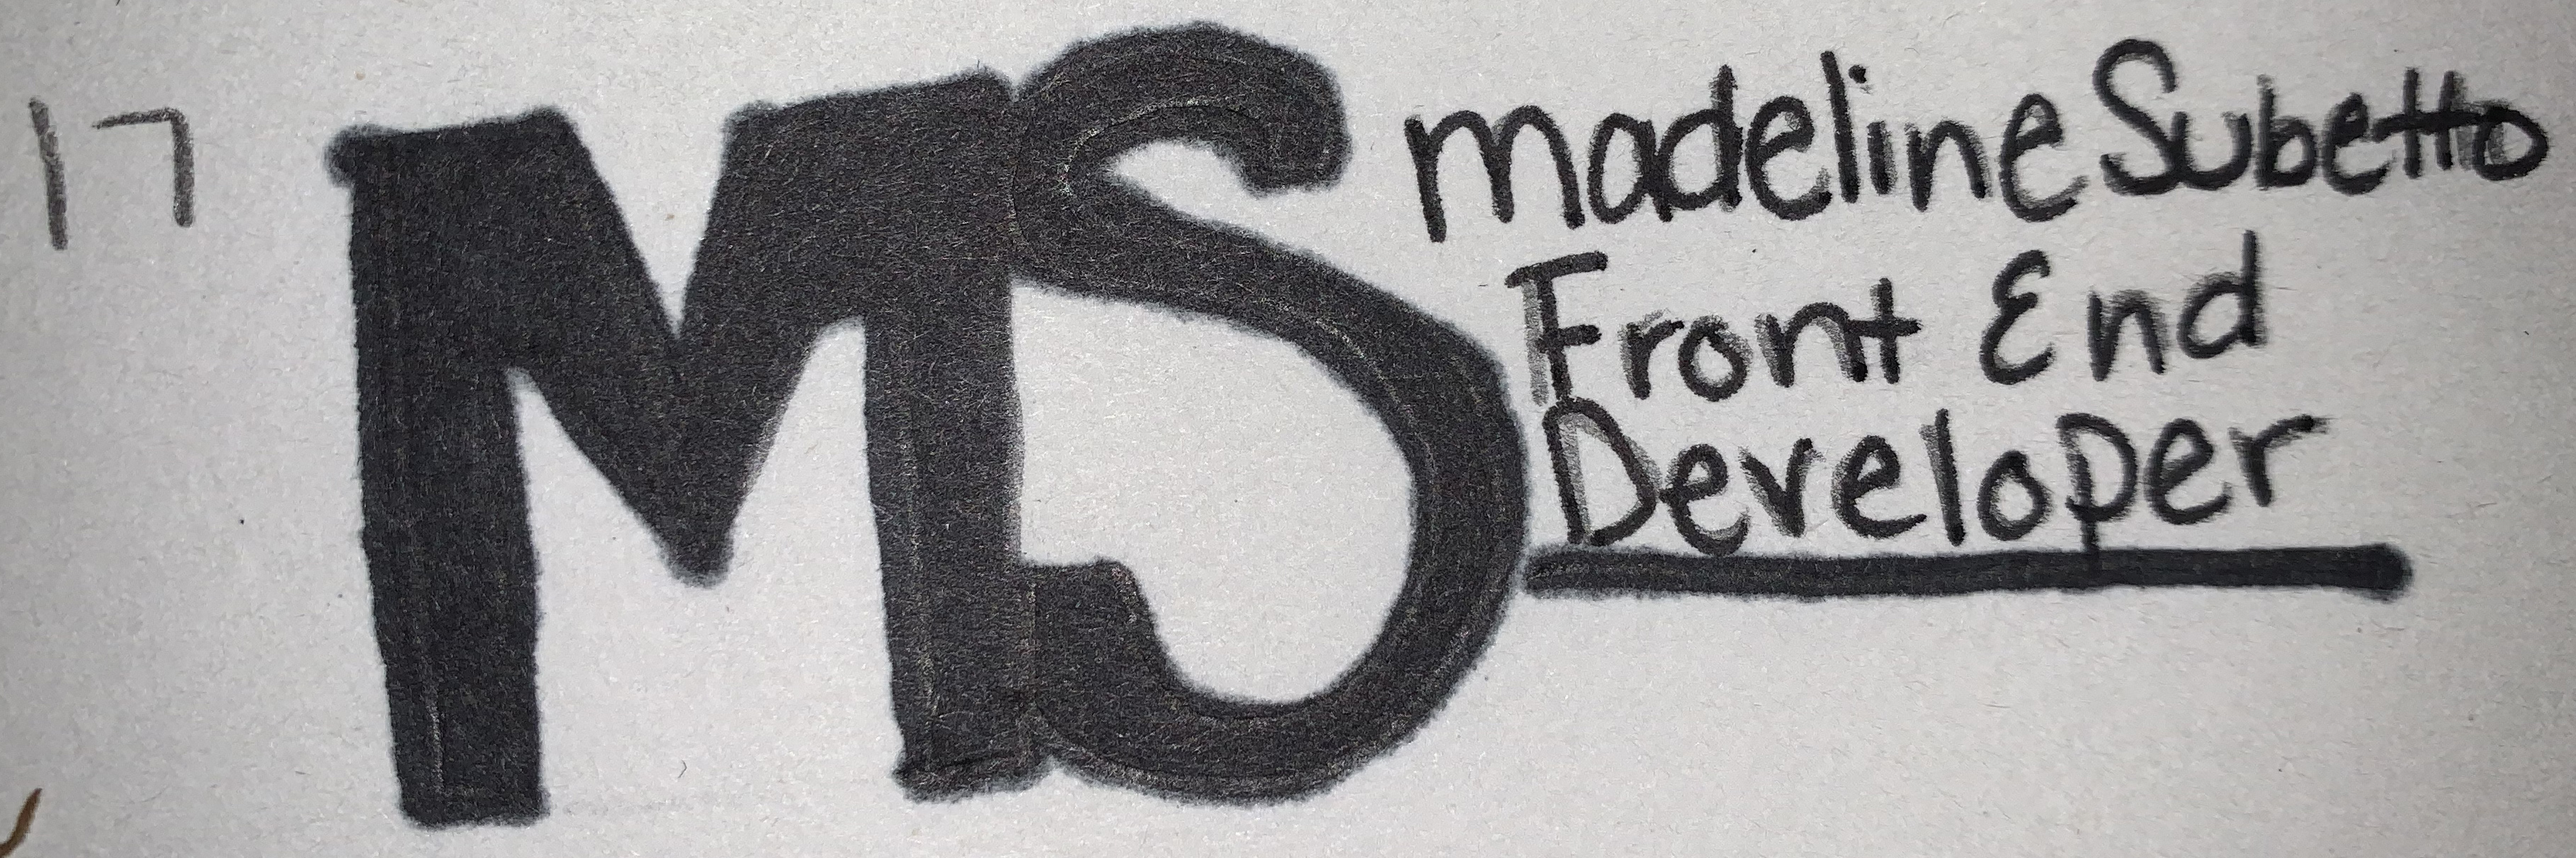 17
MS
madeline Subetto
Front End
Developer